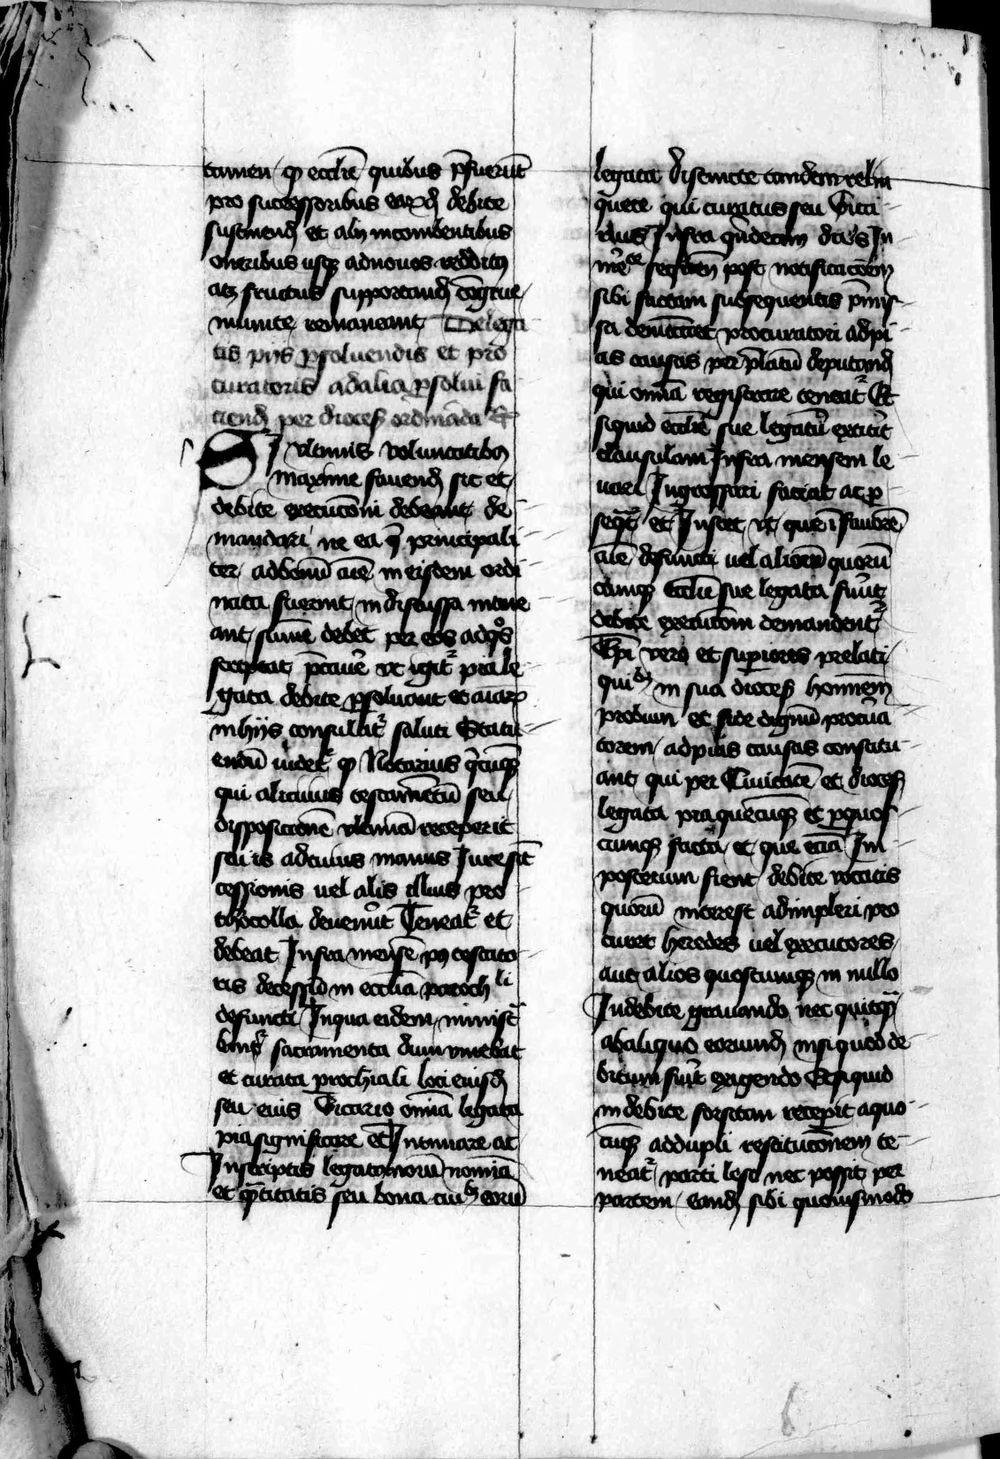 tamen / ꝙ ecclīe quibus p̄fuerūt
pro successoribus eaꝝdꝫ debite
sustinendꝫ et alijs incombentibus
oneribus usqꝫ ad nouos redditꝰ
atqꝫ fructus supportandꝫ cōgrue
munite remaneant De lega
tis pijs ꝑsoluendis et pro
curatoris ad alia ꝑsolui fa
ciendꝫ per dioces ordināda Rᵃ
SI vltimis voluntatibꝰ
maxime fauendꝫ sit et
debite execucōni debeant de
mandari ne ea q̄ principali
ter ad bonū aīe in eisdem ordi
nata fuerint in discussa mane
ant sūme debet per eos ad qͦs
spectat p̄caueri vt igitᷣ pia le
gata debite ꝑsoluant et aīaꝝ
in hijs consulatᷣ saluti Statu
endū uidetᷣ ꝙ Notarius q̄cūqꝫ
qui alicuius testamētū seu
disposicionē vltimā receperit
seu is ad cuius manus Iure suc
cessionis uel alis illius pro
thocolla deuenūt Teneatᷣ et
debeat Infra mensē pꝰ testato
ris decessū in ecclīa paroch li
defuncti In qua eidem ministᷓ
bantᷣ sacramenta dum viuebat
et curato prochiali loci eiusdꝫ
seu eius Vicario omīa legata
pia significare et Intimare ac
In scriptis legatariorū nomīa
et q̄titatis seu bona cuiꝰ eorū
legata distincte tandem relin
quere qui curatus seu Vica
rius Infra quīdecim dies In
mēdꝫ sequētem post notificacōem
sibi factam subsequentis p̄mis
sa denūciet procuratori ad pi
as causas per p̄latū deputandꝫ
qui omīa registrare teneatᷣ Et
si quid ecclīe sue legatū extitit
clausulam Infra mensem le
uari Ingrossari faciat ac ꝑ
seqᷓt et Instet vt que ī fauorē
aīe defuncti uel alioꝝ quorū
cumqꝫ ecclīe sue legata fūit
debite execucōni demandentᷣ
Epī vero et superiores prelati
quilibꝫ in sua dioces hominem
probum et fide dignū procura
torem / ad pias causas constitu
ant qui per Ciuitatē et dioces
legata pia quecūqꝫ et ꝑ quos
cūqꝫ facta et que etiā Im
posterum fient debite vocatis
quorū interest adimpleri pro
curet heredes uel executores
aut alios quoscumqꝫ in nullo
Indebite grauando nec quitqᷓ
ab aliquo eorundꝫ nisi quod de
bitum fūit exigendo Et si quid
indebite forsitan receperit a quo
cūqꝫ ad dupli restitucōnem te
neatᷣ parti lese nec possit per
partem / eandꝫ sibi quouismodo